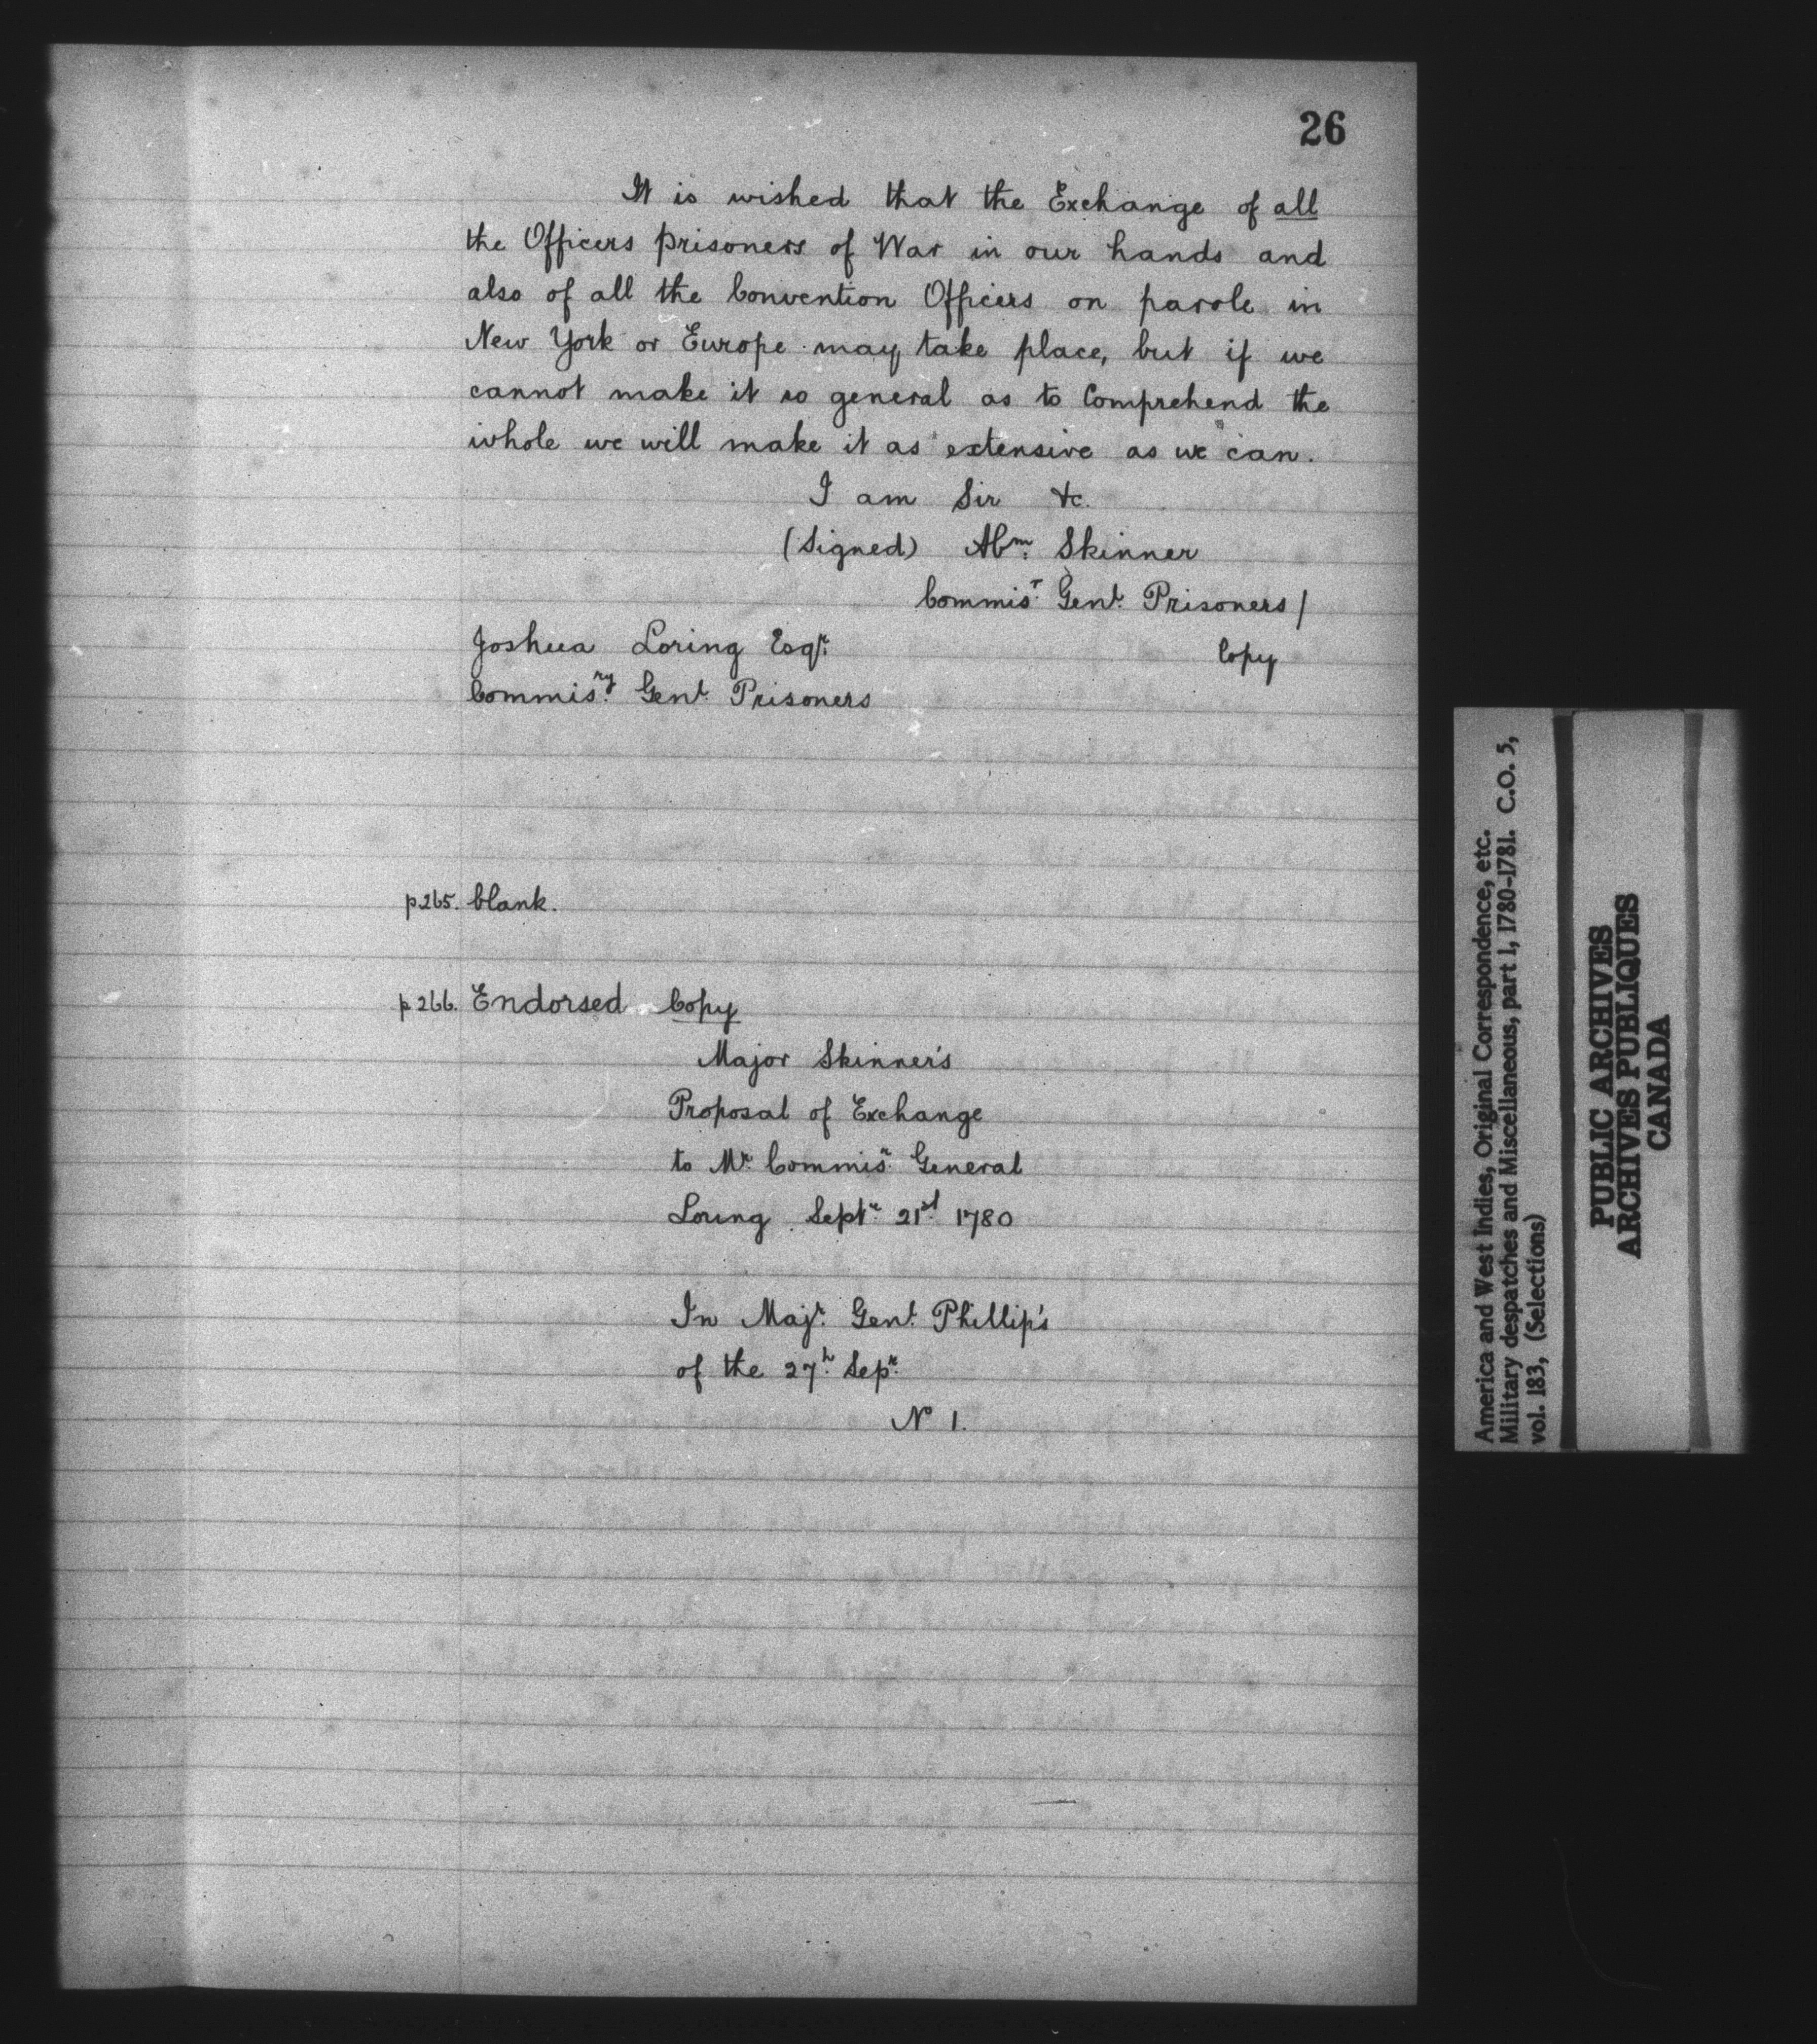 26
It is wished that the Exchange of all
the Officers prisoners of War in our hands and
also of all the Convention Officers on parole in
New York or Europe may take place, but if we
cannot make it so general as to Comprehend the
whole we will make it as extensive as we can.
I am Sir &c.
(Signed) Abm. Skinner
Commisr. Genl. Prisoners /
Joshua Loring Esqr.
Copy
Commisry. Genl. Prisoners
p265. blank.
p266. Endorsed Copy
Major Skinner's
Proposal of Exchange
to Mr. Commisr. General
Loring. Septr. 21st. 1780
In Majr. Genl. Phillip's
of the 27h. Sepr.
No 1.
America and West Indies, Original Correspondence, etc.
Military despatches and Miscellaneous, part 1, 1780-1781. C.O. 5,
vol. 183, (Selections)
PUBLIC ARCHIVES
ARCHIVES PUBLIQUES
CANADA